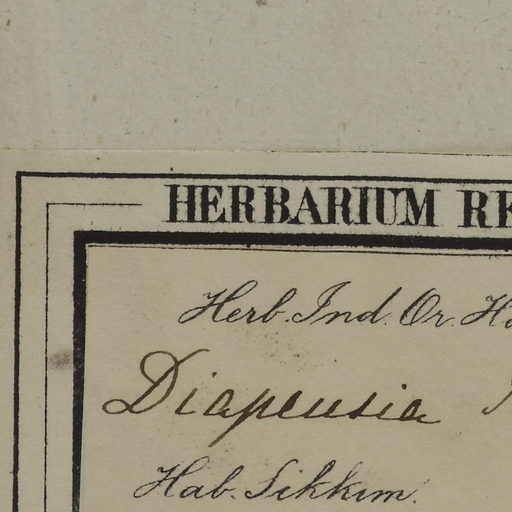 HERBARIUM
Herb. Ind. Or.
Diapensia
Hab. Sikkim.